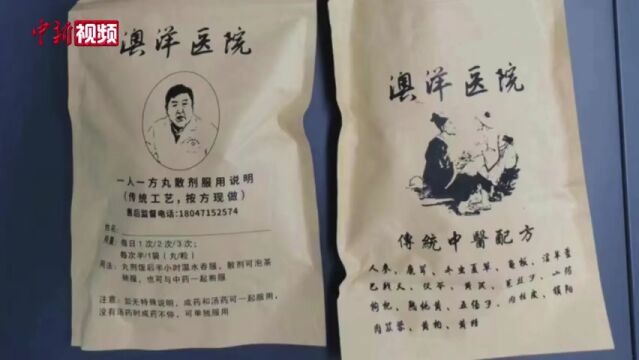 中新视频
澳洋医院
一人一方丸散剂服用说明
(传统工艺,按方现做)
售后监督电话:18047152574
姓名:
用量:每日1次/2次/3次;
每次半/1袋(丸/粒)
用法:丸剂饭后半小时温水吞服,散剂可泡茶
袖服,也可与中药一起煎服
注意:如无特殊说明,成药和汤药可一起服用,
没有汤药时成药不停,可单独服用
澳洋医院
傳統中醫配方
人参、鹿茸、冬虫夏草、龟板、淫羊藿
巴戟天、茯苓、黄芪、菟丝子、山药
枸杞、熟地黄、五倍子、肉桂皮、锁阳
肉苁蓉、黄柏、黄精